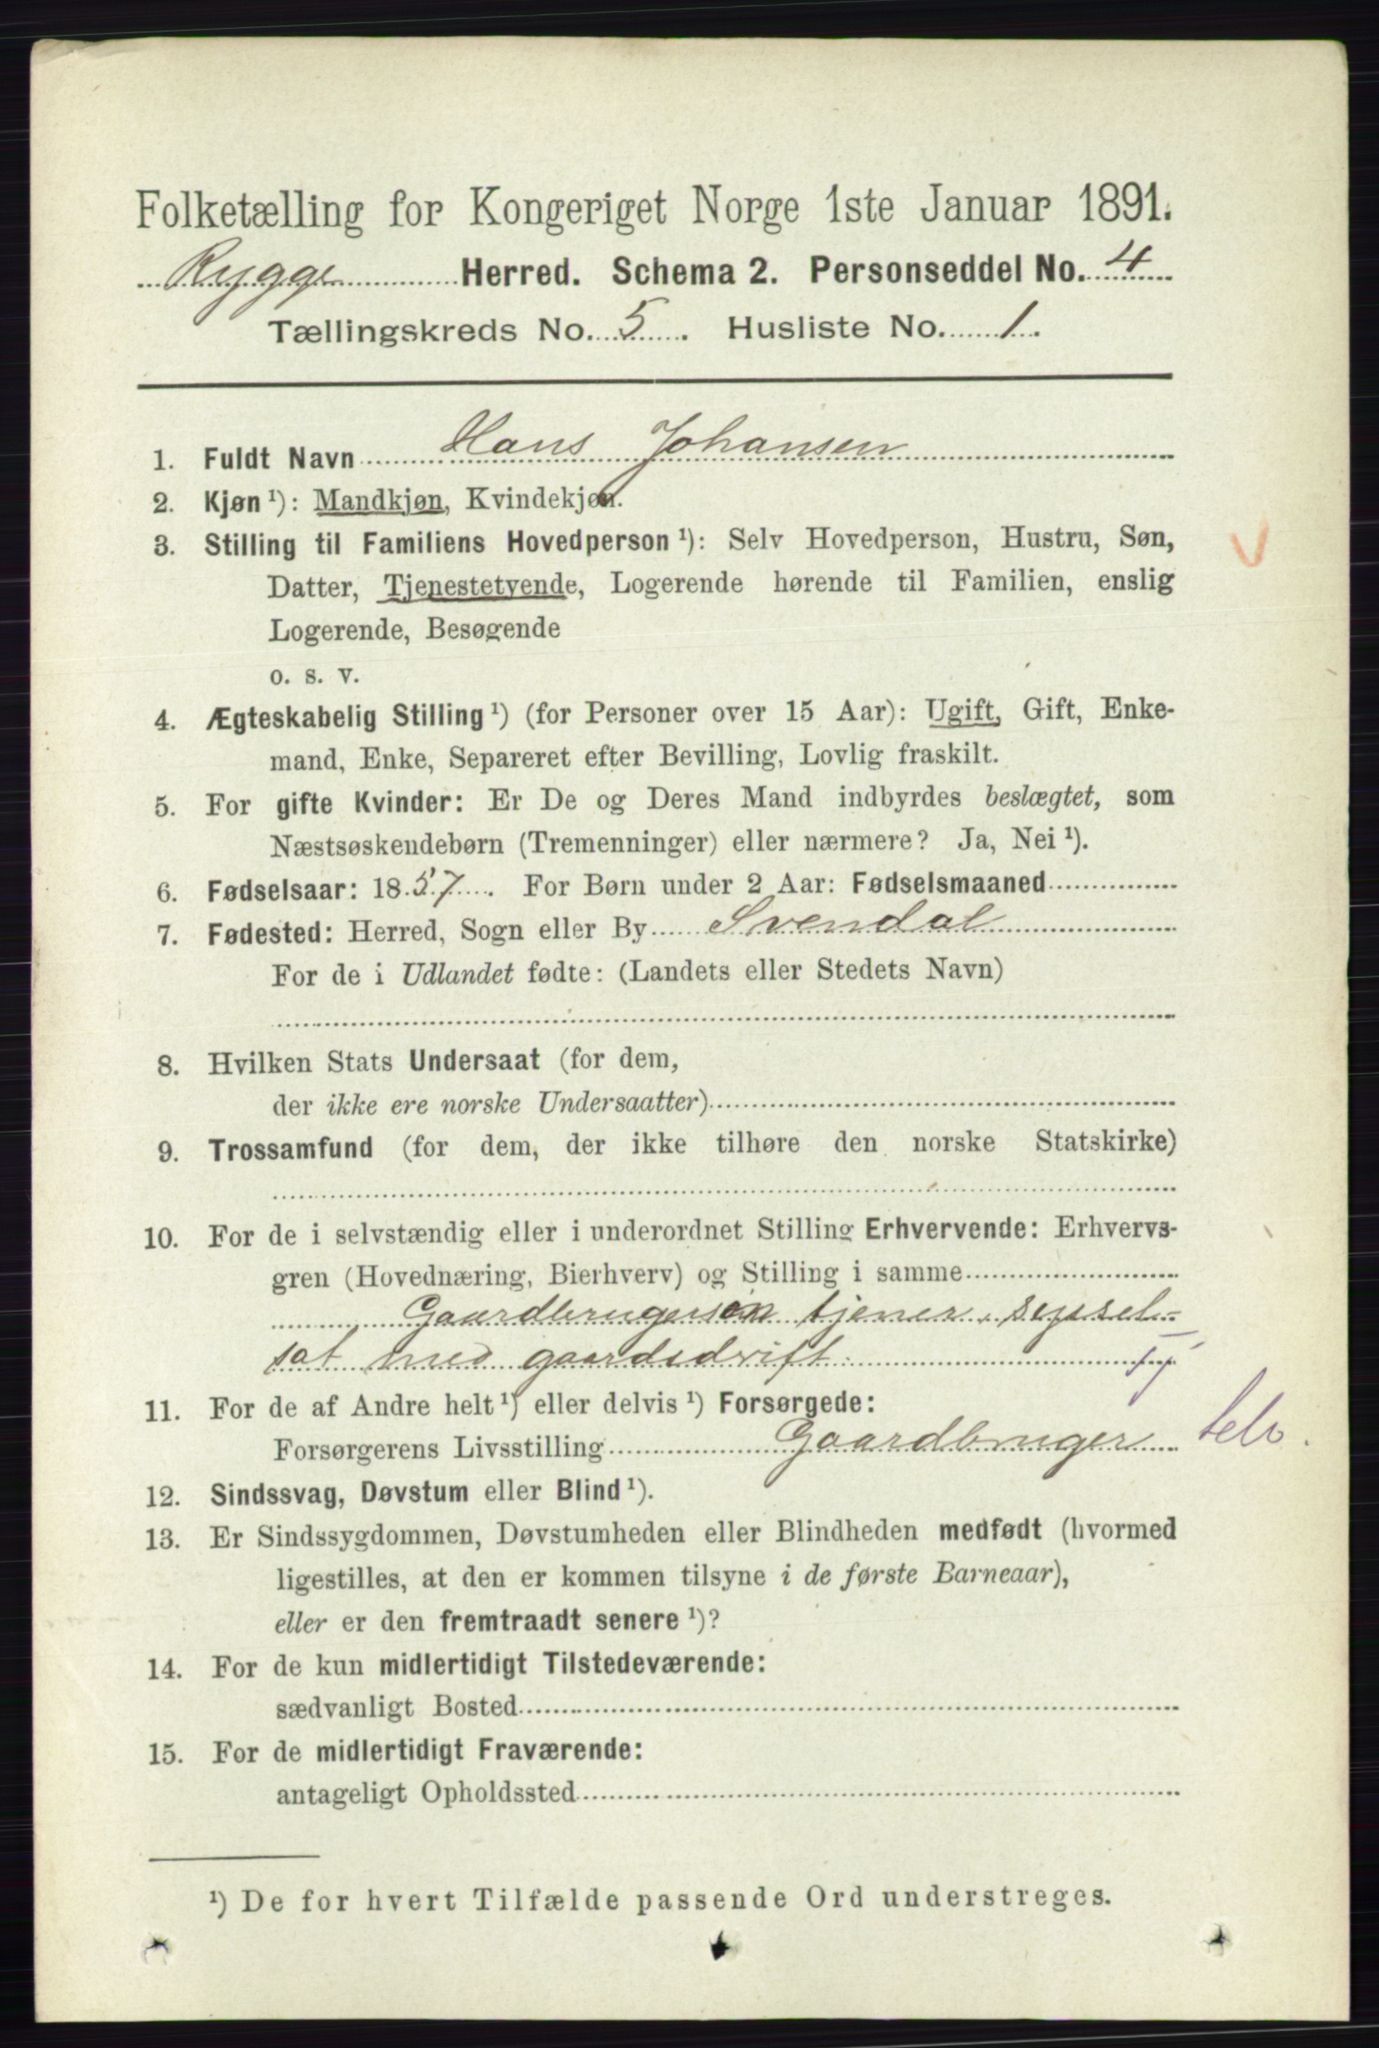 Folketælling for Kongeriget Norge 1ste Januar 1891.
Rygge Herred. Schema 2. Personseddel No. 4
Tællingskreds No. 5. Husliste No. 1.
1. Fuldt Navn Hans Johansen
2. Kjøn ¹): Mandkjøn, Kvindekjøn.
3. Stilling til Familiens Hovedperson ¹): Selv Hovedperson, Hustru, Søn,
Datter, Tjenestetyende, Logerende hørende til Familien, enslig
Logerende, Besøgende
o. s. v.
4. Ægteskabelig Stilling ¹) (for Personer over 15 Aar): Ugift, Gift, Enke-
mand, Enke, Separeret efter Bevilling, Lovlig fraskilt.
5. For gifte Kvinder: Er De og Deres Mand indbyrdes beslægtet, som
Næstsøskendebørn (Tremenninger) eller nærmere? Ja, Nei ¹).
6. Fødselsaar: 1857. For Børn under 2 Aar: Fødselsmaaned
7. Fødested: Herred, Sogn eller By Svendal
For de i Udlandet fødte: (Landets eller Stedets Navn)
8. Hvilken Stats Undersaat (for dem,
der ikke ere norske Undersaatter)
9. Trossamfund (for dem, der ikke tilhøre den norske Statskirke)
10. For de i selvstændig eller i underordnet Stilling Erhvervende: Erhvervs-
gren (Hovednæring, Bierhverv) og Stilling i samme
tjener, syssel-
sat med gaardsdrift.
11. For de af Andre helt ¹) eller delvis ¹) Forsørgede:
Forsørgerens Livsstilling Gaardbruger selv.
12. Sindssvag, Døvstum eller Blind ¹).
13. Er Sindssygdommen, Døvstumheden eller Blindheden medfødt (hvormed
ligestilles, at den er kommen tilsyne i de første Barneaar),
eller er den fremtraadt senere ¹)?
14. For de kun midlertidigt Tilstedeværende:
sædvanligt Bosted
15. For de midlertidigt Fraværende:
antageligt Opholdssted
¹) De for hvert Tilfælde passende Ord understreges.